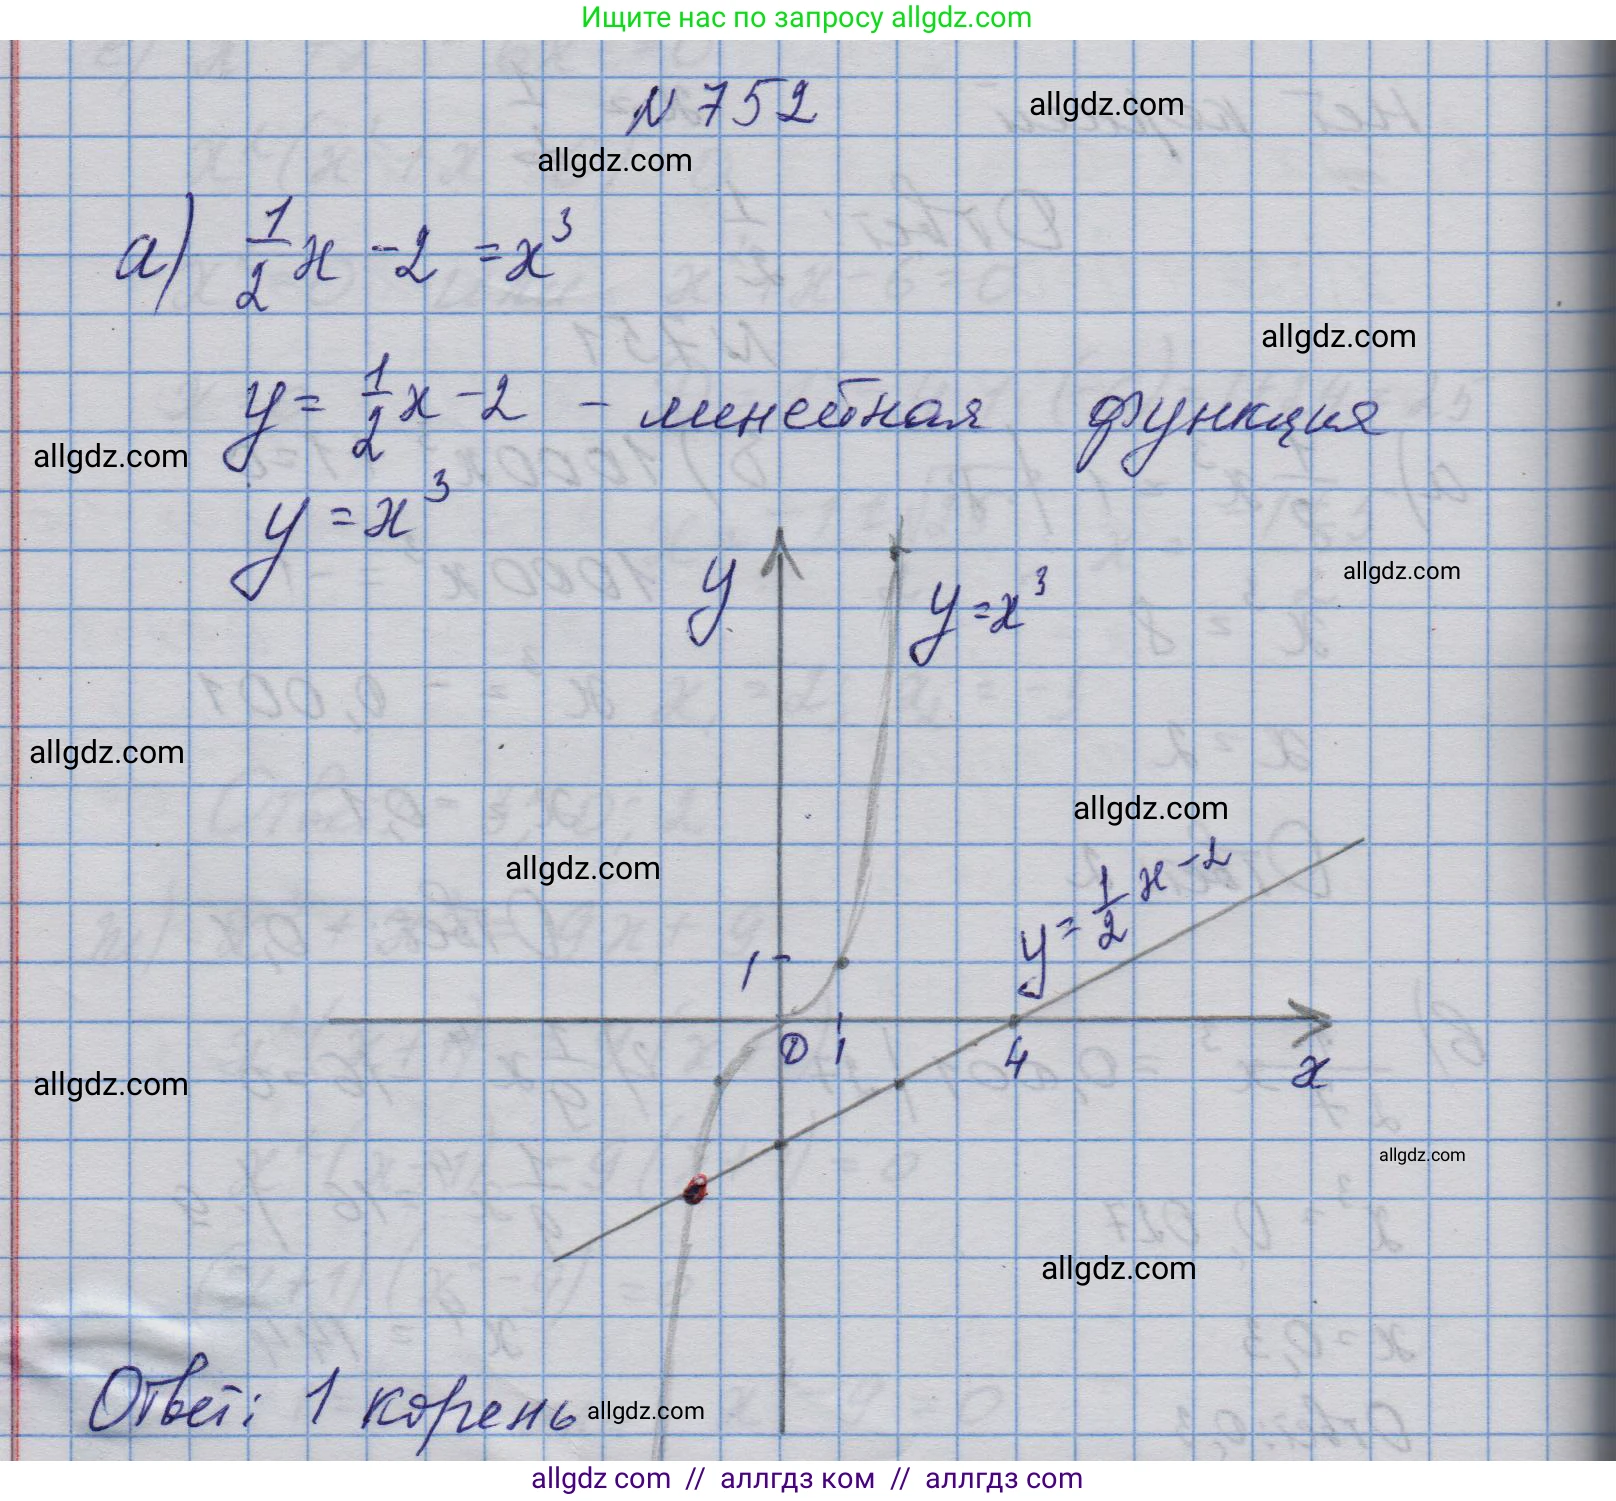 Ищите нас по запросу allgdz.com
№ 752
allgdz.com
allgdz.com
а) 1/2 x - 2 = x³
allgdz.com
y = 1/2 x - 2 - линейная функция
allgdz.com
y = x³
allgdz.com
y
y = x³
allgdz.com
allgdz.com
allgdz.com
y = 1/2 x - 2
1
0 1 4 x
allgdz.com
allgdz.com
allgdz.com
Ответ: 1 корень
allgdz.com
allgdz com // аллгдз ком // аллгдз com